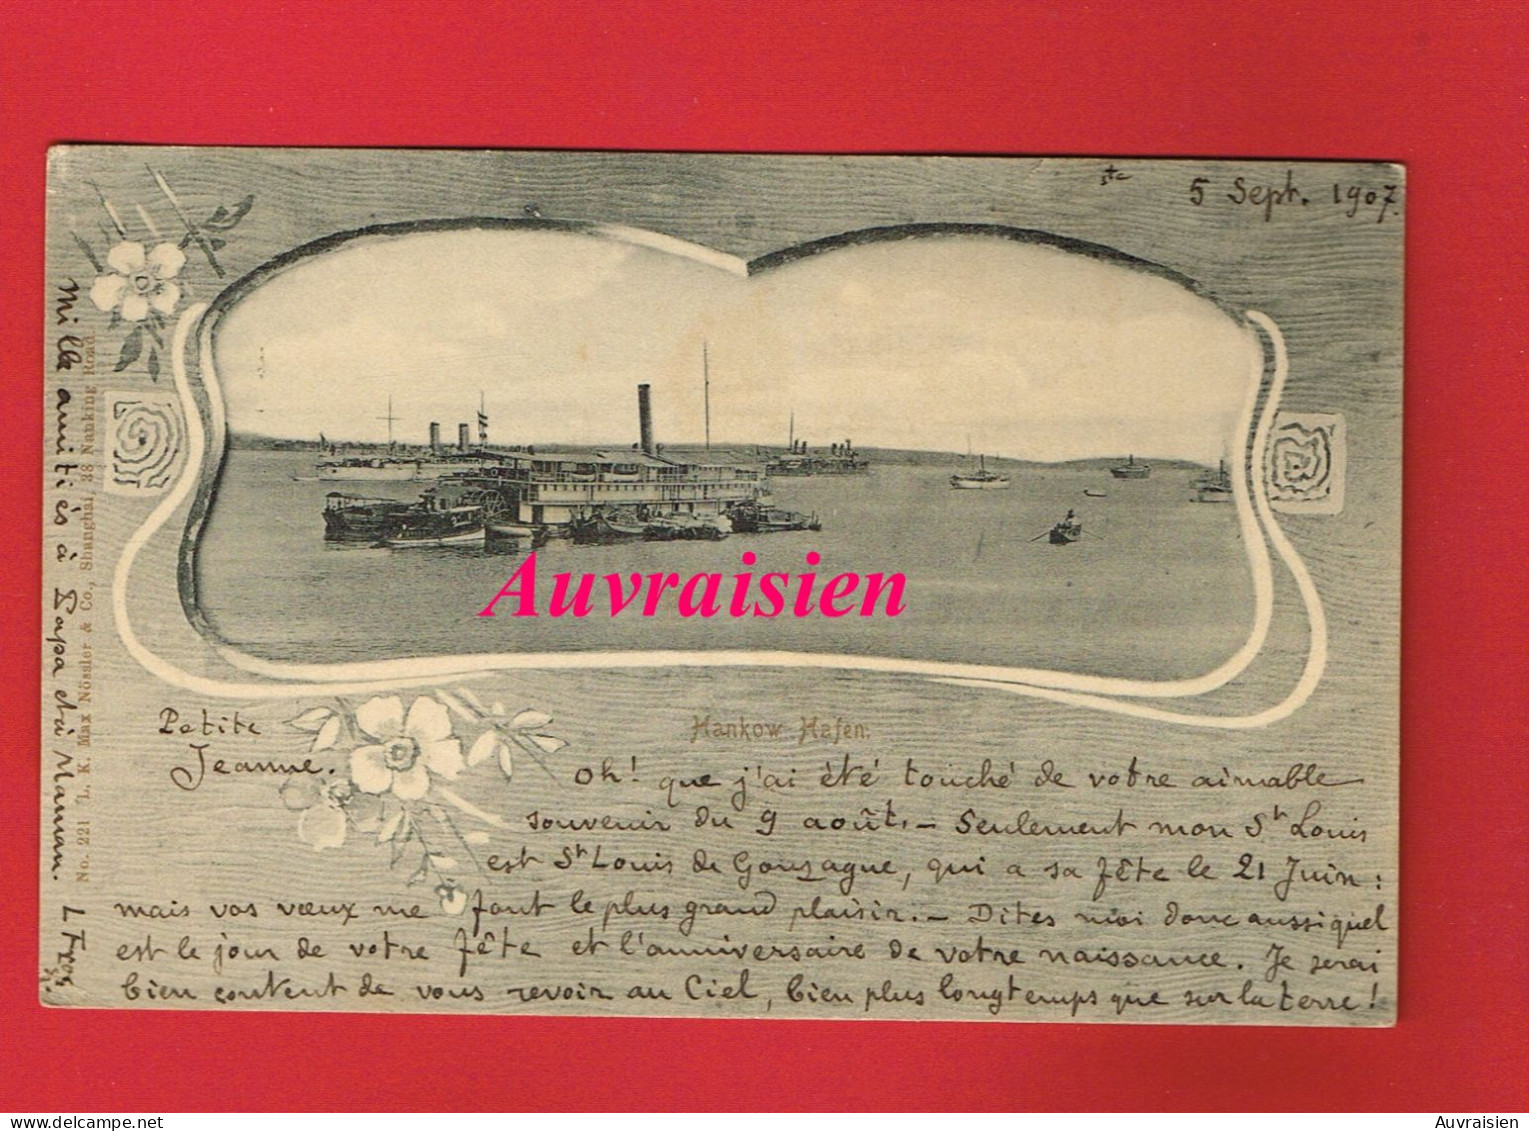 5 Sept. 1907.
Auvraisien
Hankow Hafen.
Petite
Jeanne.
Oh! que j'ai été touché de votre aimable
souvenir du 9 août. — Seulement mon St Louis
est St Louis de Gonzague, qui a sa fête le 21 Juin :
mais vos vœux me font le plus grand plaisir. — Dites moi donc aussi quel
est le jour de votre fête et l'anniversaire de votre naissance. Je serai
bien content de vous revoir au Ciel, bien plus longtemps que sur la terre !
Mille amitiés à Papa et à Maman.
No. 221 L. K. Max Nössler & Co., Shanghai, 38 Nanking Road.
Auvraisien